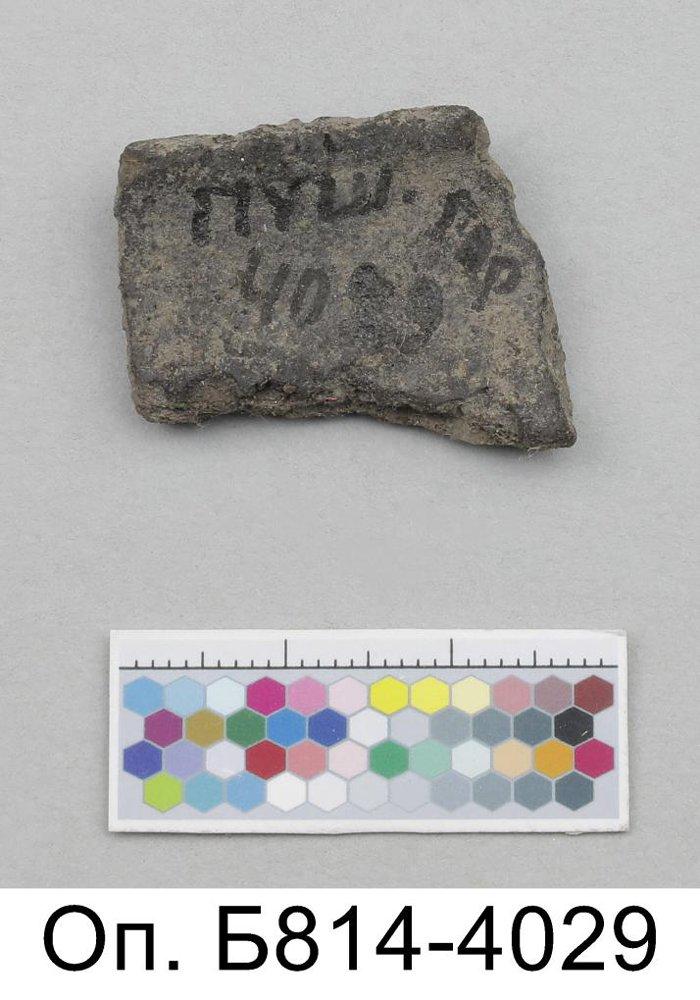 пуш. гор
40
Оп. Б814-4029